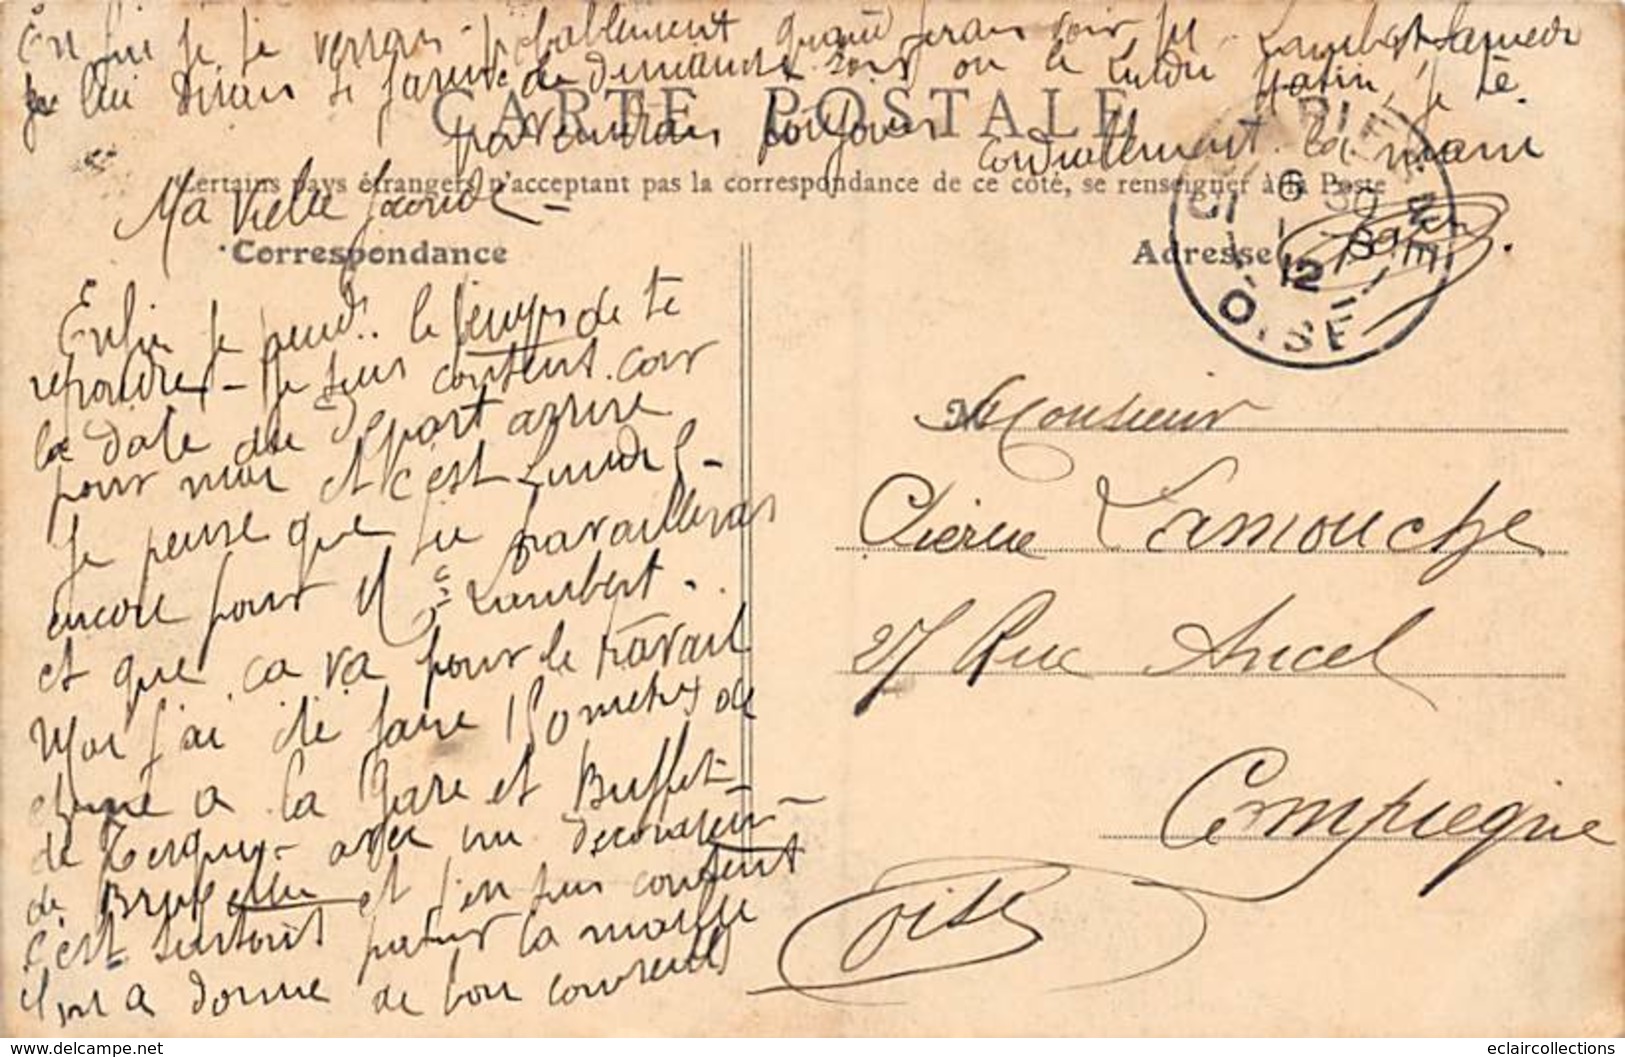 Enfin je te verrais probablement quand j'irais voir Mr Lambert Samedi
je lui dirais si j'arrive de dimanche soir ou le Lundi Matin, je te
CARTE POSTALE
préviendrais toujours
Cordiallement la main
Certains pays étrangers n'acceptant pas la correspondance de ce côté, se renseigner à la Poste
Ma Vieille
Correspondance
Adresse
6 30
12
OISE
Enfin je peud.. le temps de te
repondre - Je suis content car
la date du Départ arrive
pour moi et c'est Lundi -
Je pense que tu travailleras
encore pour Mr Lambert.
et que ça va pour le travail
Moi j'ai de faire 150 metres de
a la Gare et Buffet
de Tergnier - avec un decorateur
de Bruxelle et j'en suis content
c'est surtout pour la
il m a donné de bon conseils
Monsieur
Pierre Lamouche
27 Rue Ancel
Compiegne
Oise
www.delcampe.net
eclaircollections